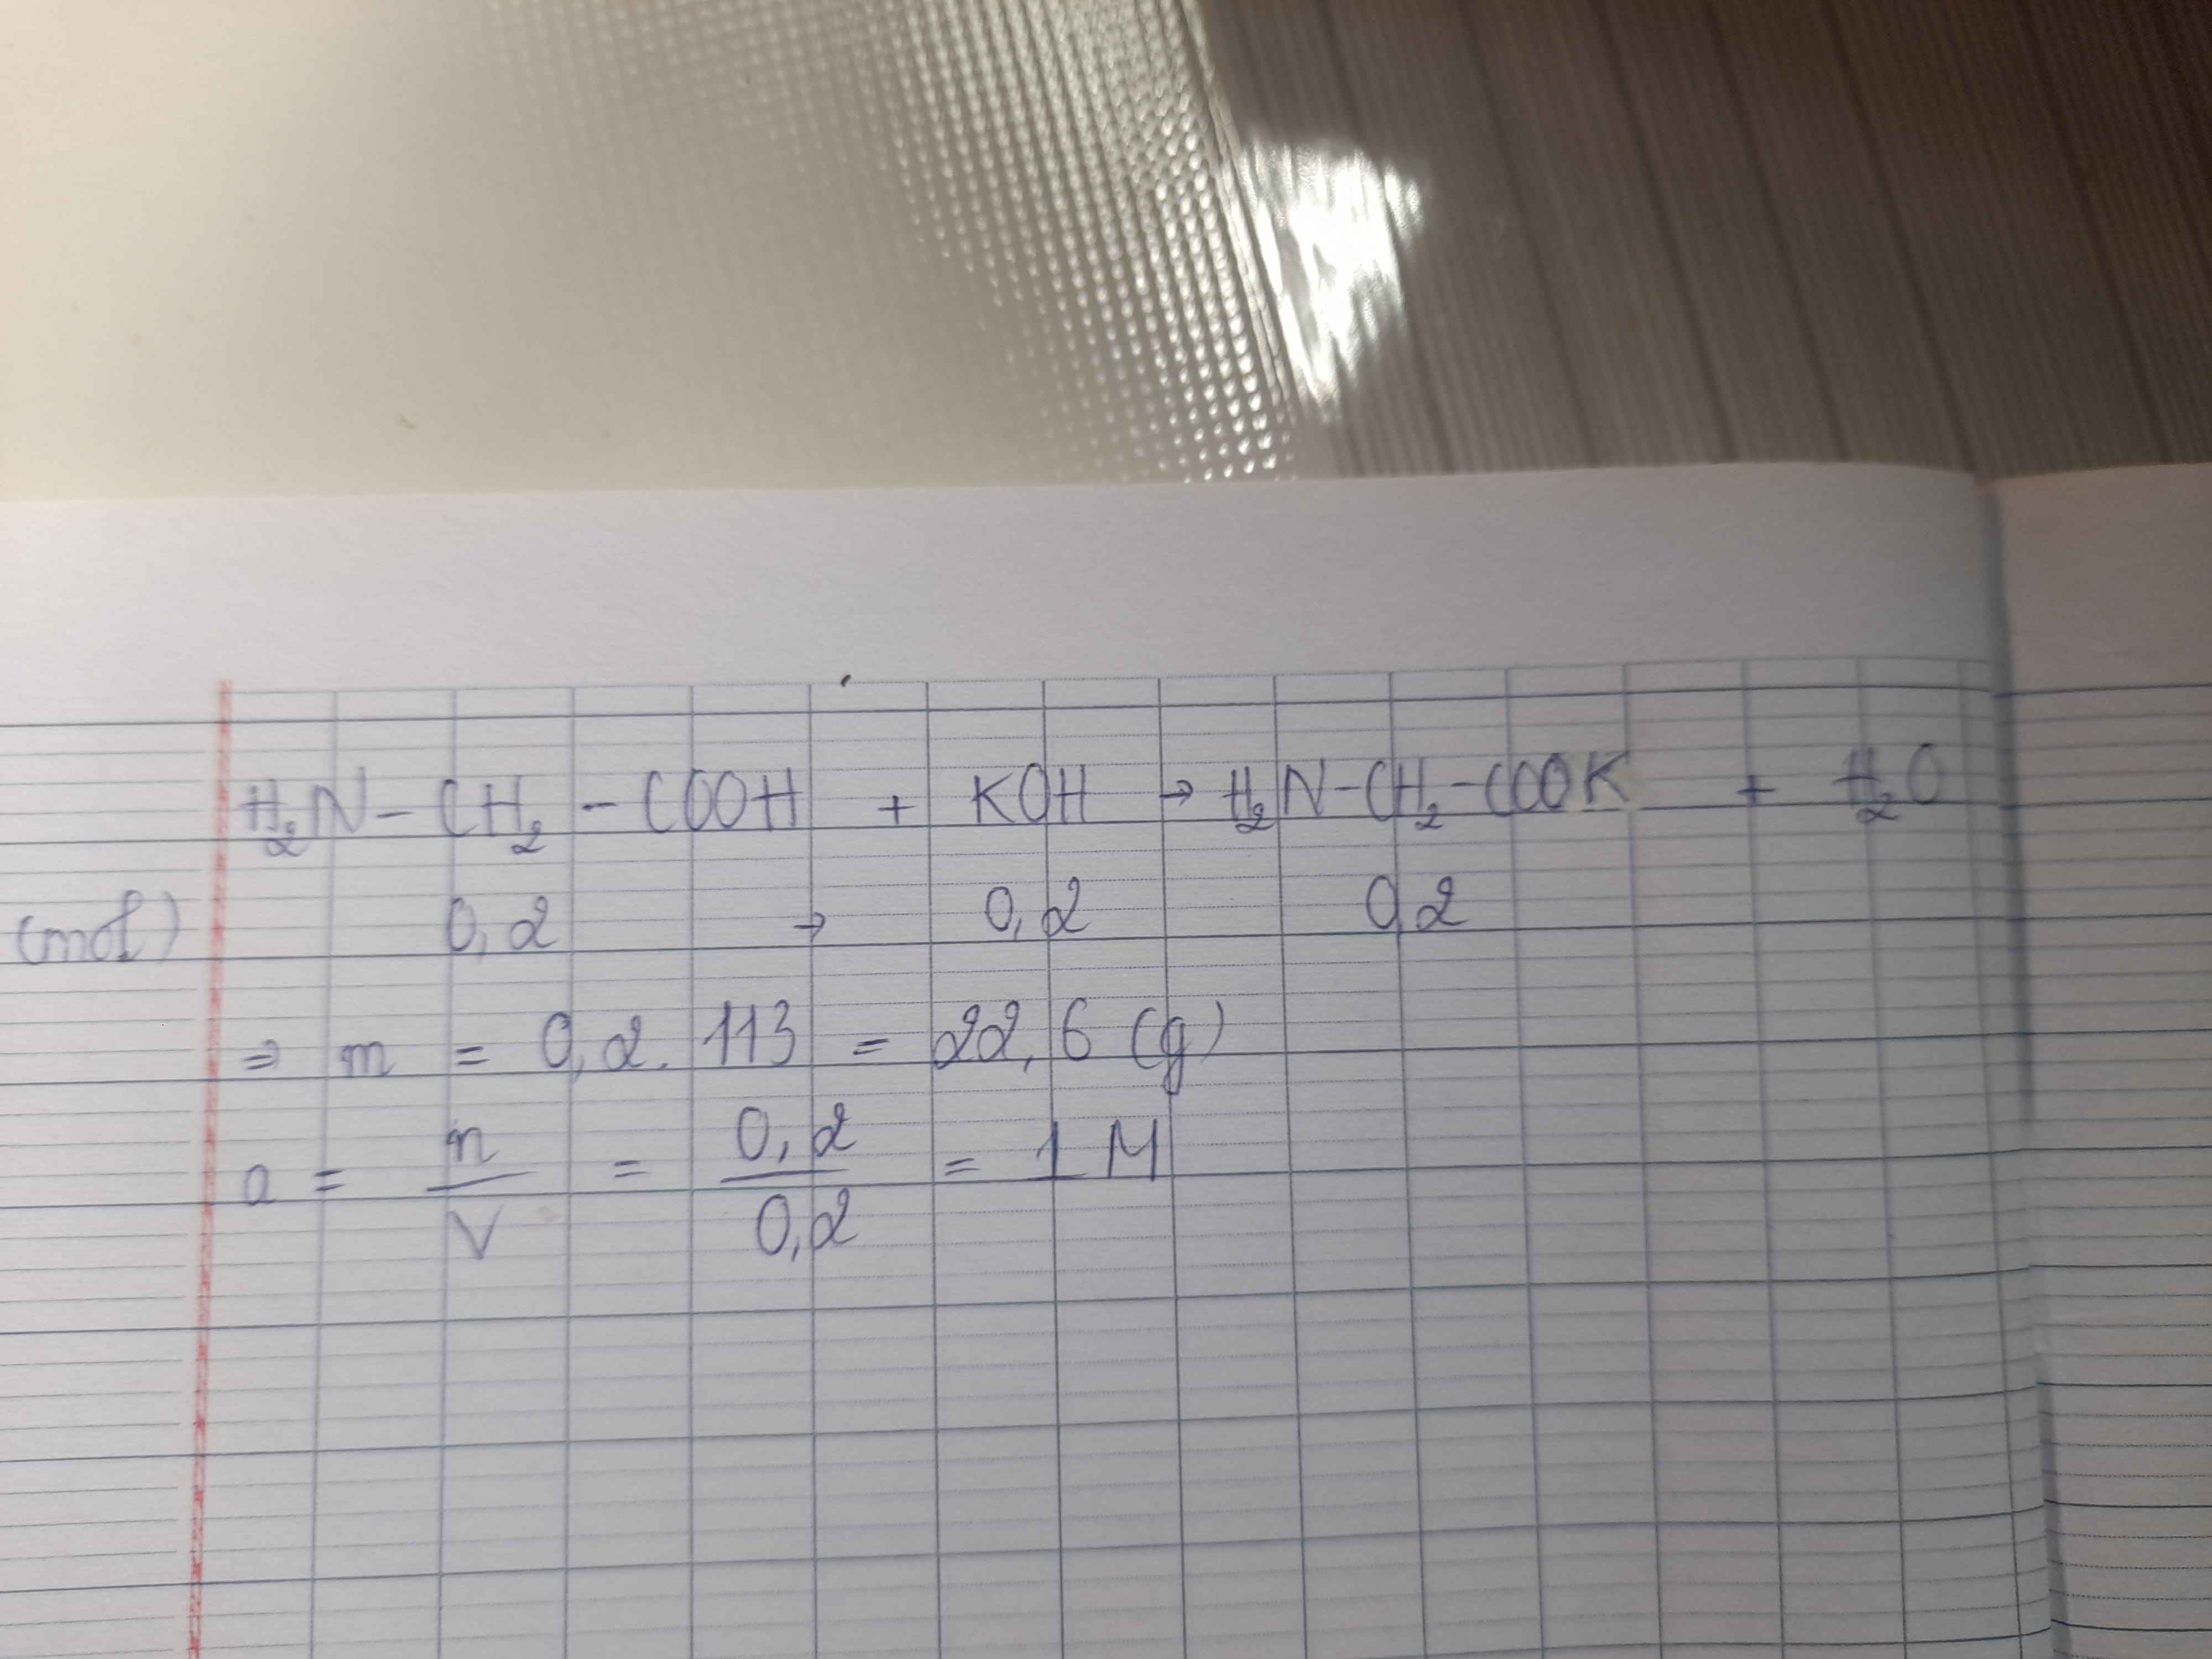 H₂N - CH₂ - COOH + KOH → H₂N-CH₂-COOK + H₂O
(mol) 0,2 → 0,2 0,2
⇒ m = 0,2. 113 = 22,6 (g)
a = n/V = 0,2/0,2 = 1 M